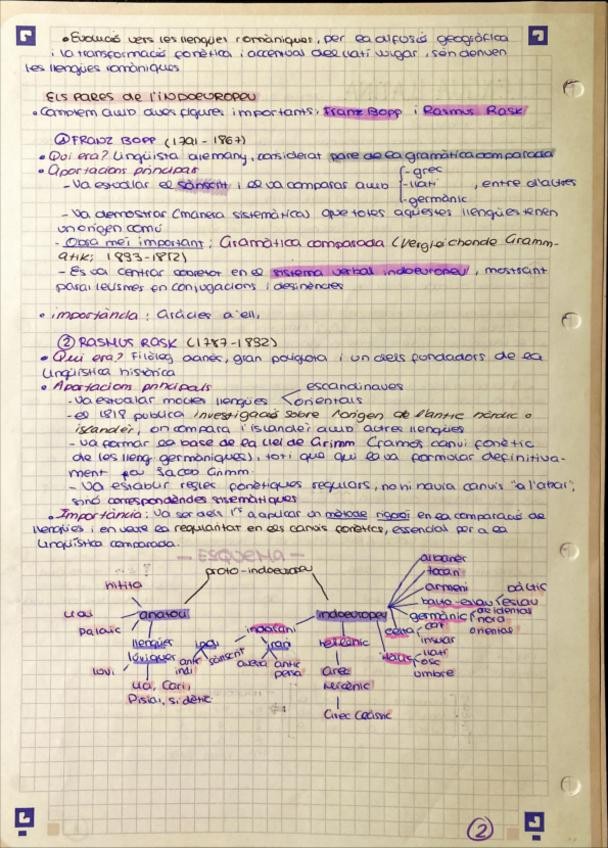 • Evolució vers les llengües romàniques, per la difusió geogràfica
i la transformació fonètica i accentual del llatí vulgar, s'en deriven
les llengües romàniques
ELS PARES DE L'INDOEUROPEU
• Comptem amb dues figures importants: Franz Bopp i Rasmus Rask
① FRANZ BOPP (1791 - 1867)
• Qui era? Lingüista alemany, considerat pare de la gramàtica comparada
• Aportacions principals
- Va estudiar el sànscrit i el va comparar amb - grec - llatí - germànic , entre d'altres
- Va demostrar (manera sistemàtica) que totes aquestes llengües tenen
un origen comú
- Obra més important: Gramàtica comparada (Vergleichende Gramm-
atik; 1833-1852)
- Es va centrar sobretot en el sistema verbal indoeuropeu, mostrant
paral·lelismes en conjugacions i desinències
• Importància: Gràcies a ell,
② RASMUS RASK (1787 - 1832)
• Qui era? Filòleg danès, gran políglota i un dels fundadors de la
lingüística històrica
• Aportacions principals
- Va estudiar moltes llengües escandinaves orientals
- el 1818 publica investigació sobre l'origen de l'antic nòrdic o
islandès, on compara l'islandès amb altres llengües
- va formar la base de la Llei de Grimm (famós canvi fonètic
de les lleng germàniques), tot i que qui la va formular definitiva-
ment fou Jacob Grimm.
- Va establir regles fonètiques regulars, no hi havia canvis "a l'atzar",
sinó correspondències sistemàtiques
• Importància: Va ser dels 1rs a aplicar un mètode rigorós en la comparació de
llengües i en veure la regularitat en els canvis fonètics, essencial per a la
lingüística comparada.
— ESQUEMA —
proto-indoeuropeu
hitita
palaic
anatoli
llengües
lúviques
luvi
Lici, Cari,
Pisidi, sidètic
indoeuropeu
indoirani
indi
antic indi
sànscrit
irani
avesta
antic persa
hel·lènic
Grec
Micènic
Grec Clàssic
albanès
tocari
armeni
balto-eslau
bàltic
eslau
germànic
occidental
nord
oriental
celta
cont
insular
itàlic
llatí
osc
umbre
2